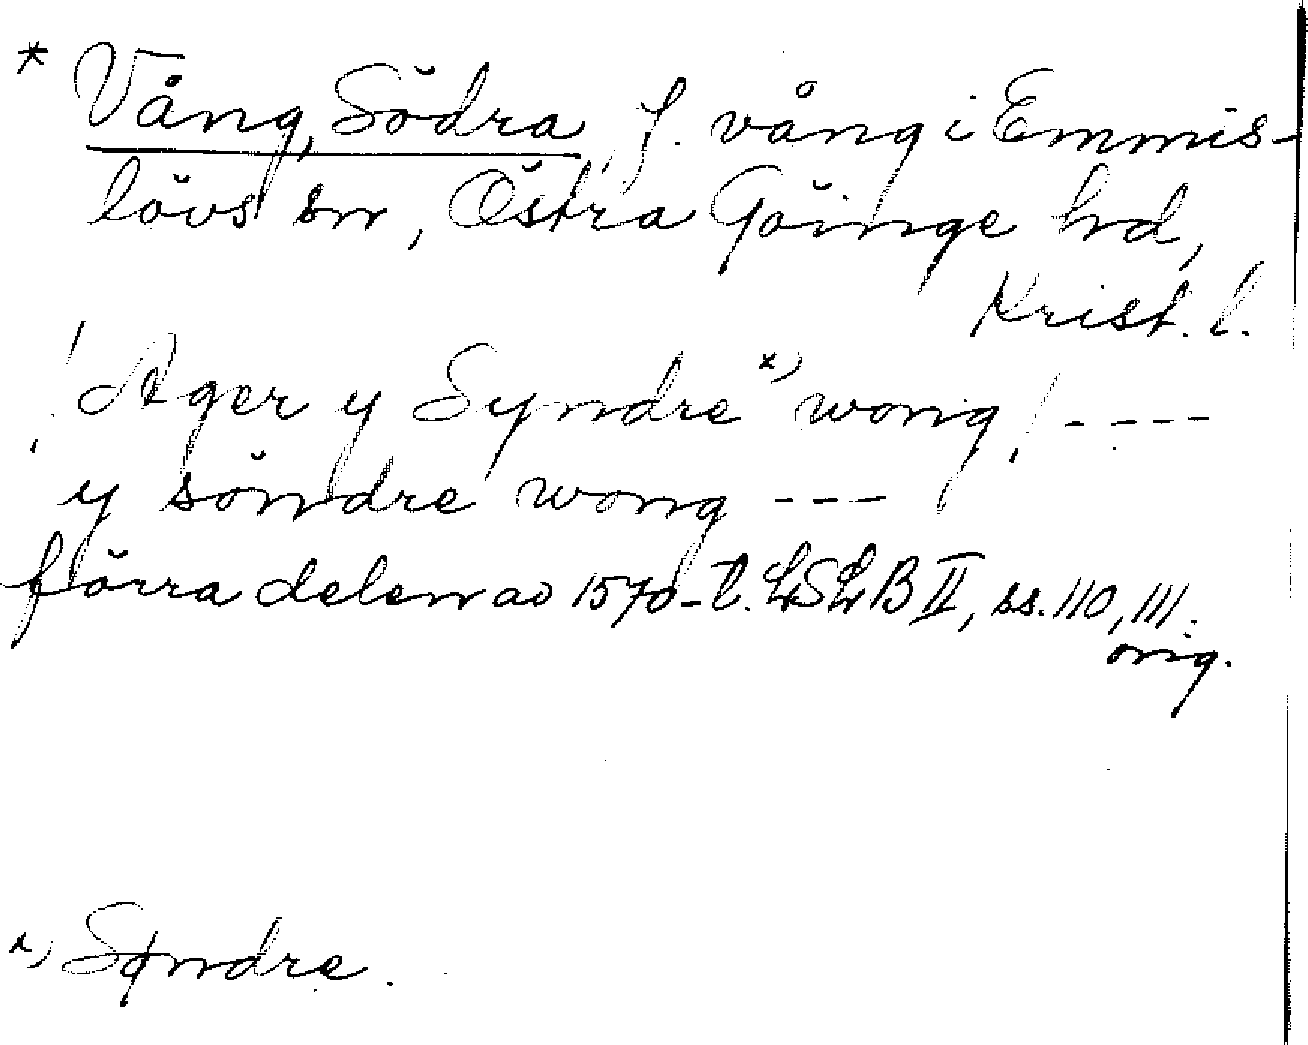 * Vång, Södra, f. vång i Emmis-
lövs sn, Östra Göinge hd,
Krist. l.
! Ager y Syndre x) wong ! ----
y söndre wong ---
förra delen av 1570-t. LSLB II, ss. 110, 111.
orig.
x) Søndre.